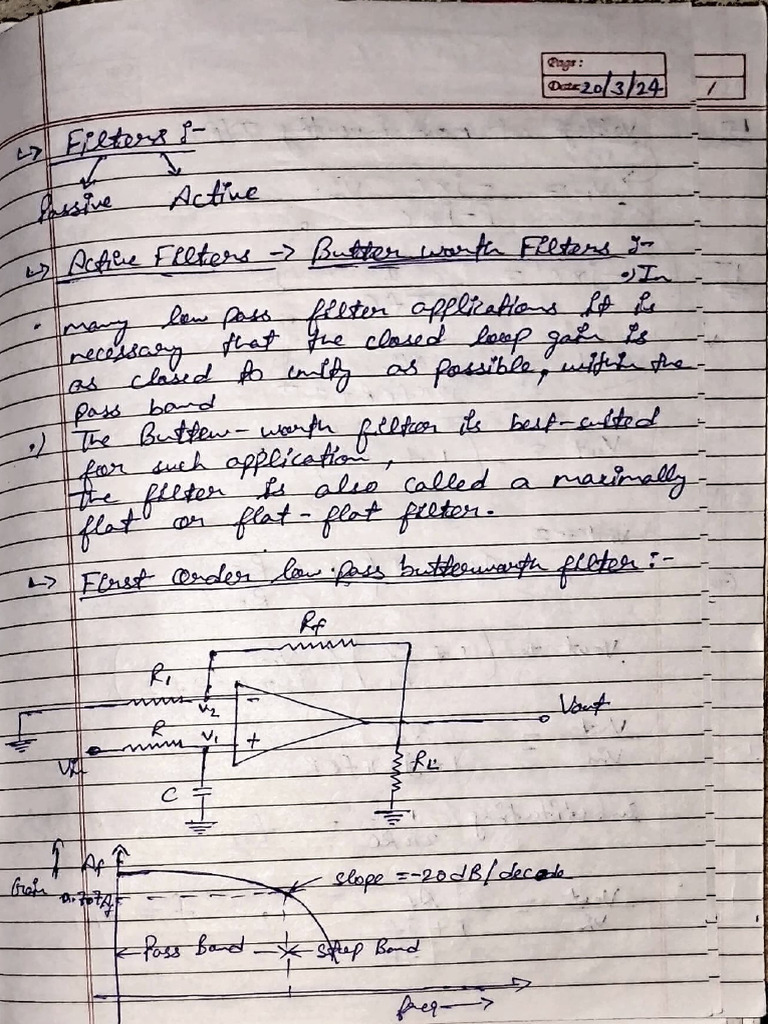 Page :
Date: 20/3/24
↳ Filters :-
Passive Active
↳ Active Filters → Butter worth Filters :-
•) In
• many low pass filter applications it is
necessary that the closed loop gain is
as closed to unity as possible, within the
pass band
•) The Butter-worth filter is best-suited
for such application,
the filter is also called a maximally
flat or flat-flat filter.
↳ First order low-pass butterworth filter :-
Rf
R1
V2
−
Vout
R
V1
+
Vin
RL
C
Af
slope = -20 dB/decade
Gain
0.707Af
Pass Band
Stop Band
freq →